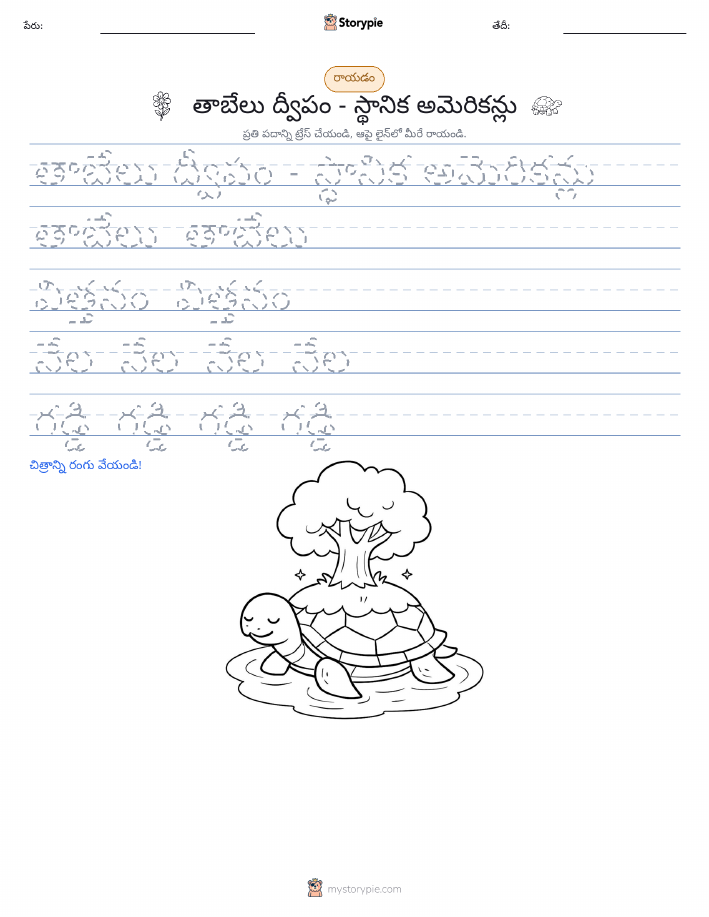 పేరు:
Storypie
తేదీ:
రాయడం
తాబేలు ద్వీపం - స్థానిక అమెరికన్లు
ప్రతి పదాన్ని ట్రేస్ చేయండి, ఆపై లైన్‌లో మీరే రాయండి.
తాబేలు ద్వీపం - స్థానిక అమెరికన్లు
తాబేలు తాబేలు
విత్తనం విత్తనం
నేల నేల నేల నేల
గడ్డి గడ్డి గడ్డి గడ్డి
చిత్రాన్ని రంగు వేయండి!
mystorypie.com